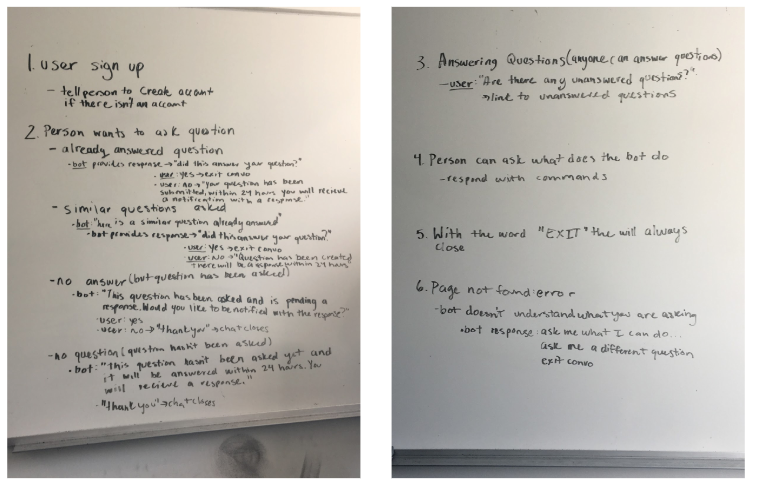 1. user sign up
- tell person to create account
if there isn't an account
2. Person wants to ask question
- already answered question
· bot provides response → "did this answer your question?"
· user: yes → exit convo
· user: no → "Your question has been
submitted, within 24 hours you will recieve
a notification with a response."
- similar questions asked
· bot: "here is a similar question already answered"
· bot provides response → "did this answer your question?"
· user: yes → exit convo
user: NO → "Question has been created
there will be a response within 24 hours"
- no answer (but question has been asked)
· bot: "This question has been asked and is pending a
response. Would you like to be notified with the response?"
· user: yes
· user: no → "Thank you" → chat closes
- no question (question hasn't been asked)
· bot: "This question hasn't been asked yet and
it will be answered within 24 hours. You
will recieve a response."
· "Thank you" → chat closes
3. Answering Questions (anyone can answer questions)
- user: "Are there any unanswered questions?"
→ link to unanswered questions
4. Person can ask what does the bot do
- respond with commands
5. With the word "EXIT" the will always
close
6. Page not found: error
- bot doesn't understand what you are asking
· bot response: ask me what I can do...
ask me a different question
exit convo